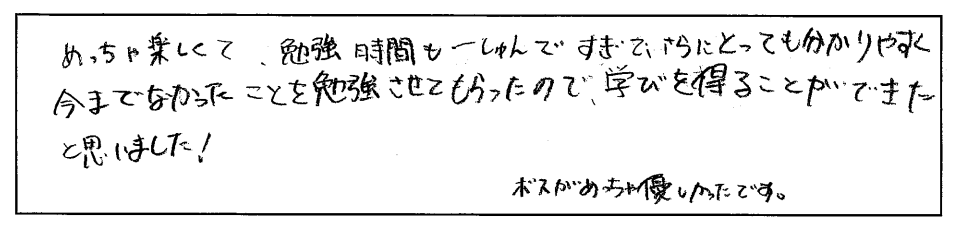 めっちゃ楽しくて、勉強時間も一しゅんですぎて、さらにとっても分かりやすく
今までなかったことを勉強させてもらったので、学びを得ることができた
と思いました!
ボスがめっちゃ優しかったです。